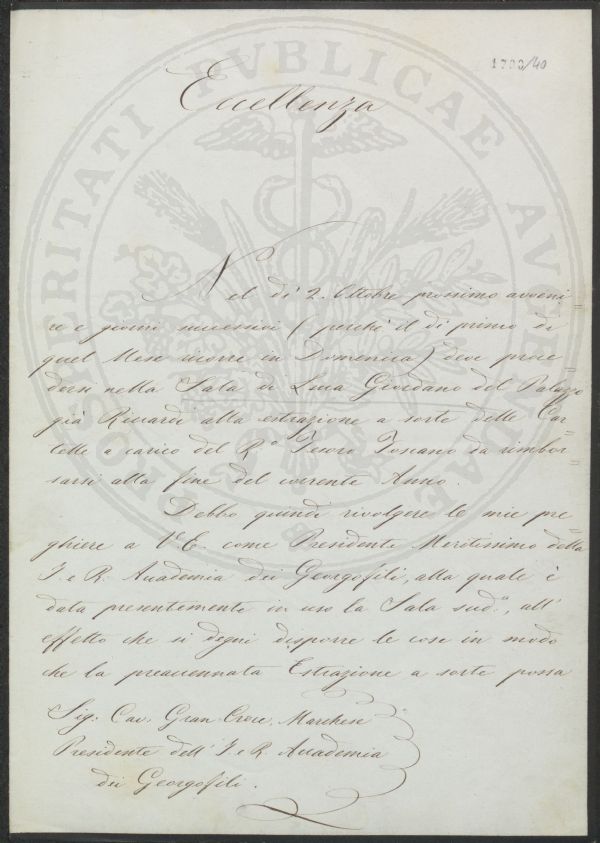 1793/40
PROSPERITATI PVBLICAE AVGENDAE
Eccellenza
Nel dì 2. Ottobre prossimo avveni=
re e giorni successivi (perchè il dì primo di
quel Mese ricorre in Domenica) deve proce=
dersi nella Sala di Luca Giordano del Palazzo
già Riccardi alla estrazione a sorte delle Car=
telle a carico del R.º Tesoro Toscano da rimbor=
sarsi alla fine del corrente Anno.
Debbo quindi rivolgere le mie pre=
ghiere a V.E. come Presidente Meritissimo della
I. e R. Accademia dei Georgofili, alla quale è
data presentemente in uso la Sala sud.ª, all'
effetto che si degni disporre le cose in modo
che la preaccennata Estrazione a sorte possa
Sig: Cav. Gran Croce, Marchese
Presidente dell'I. e R. Accademia
dei Georgofili.